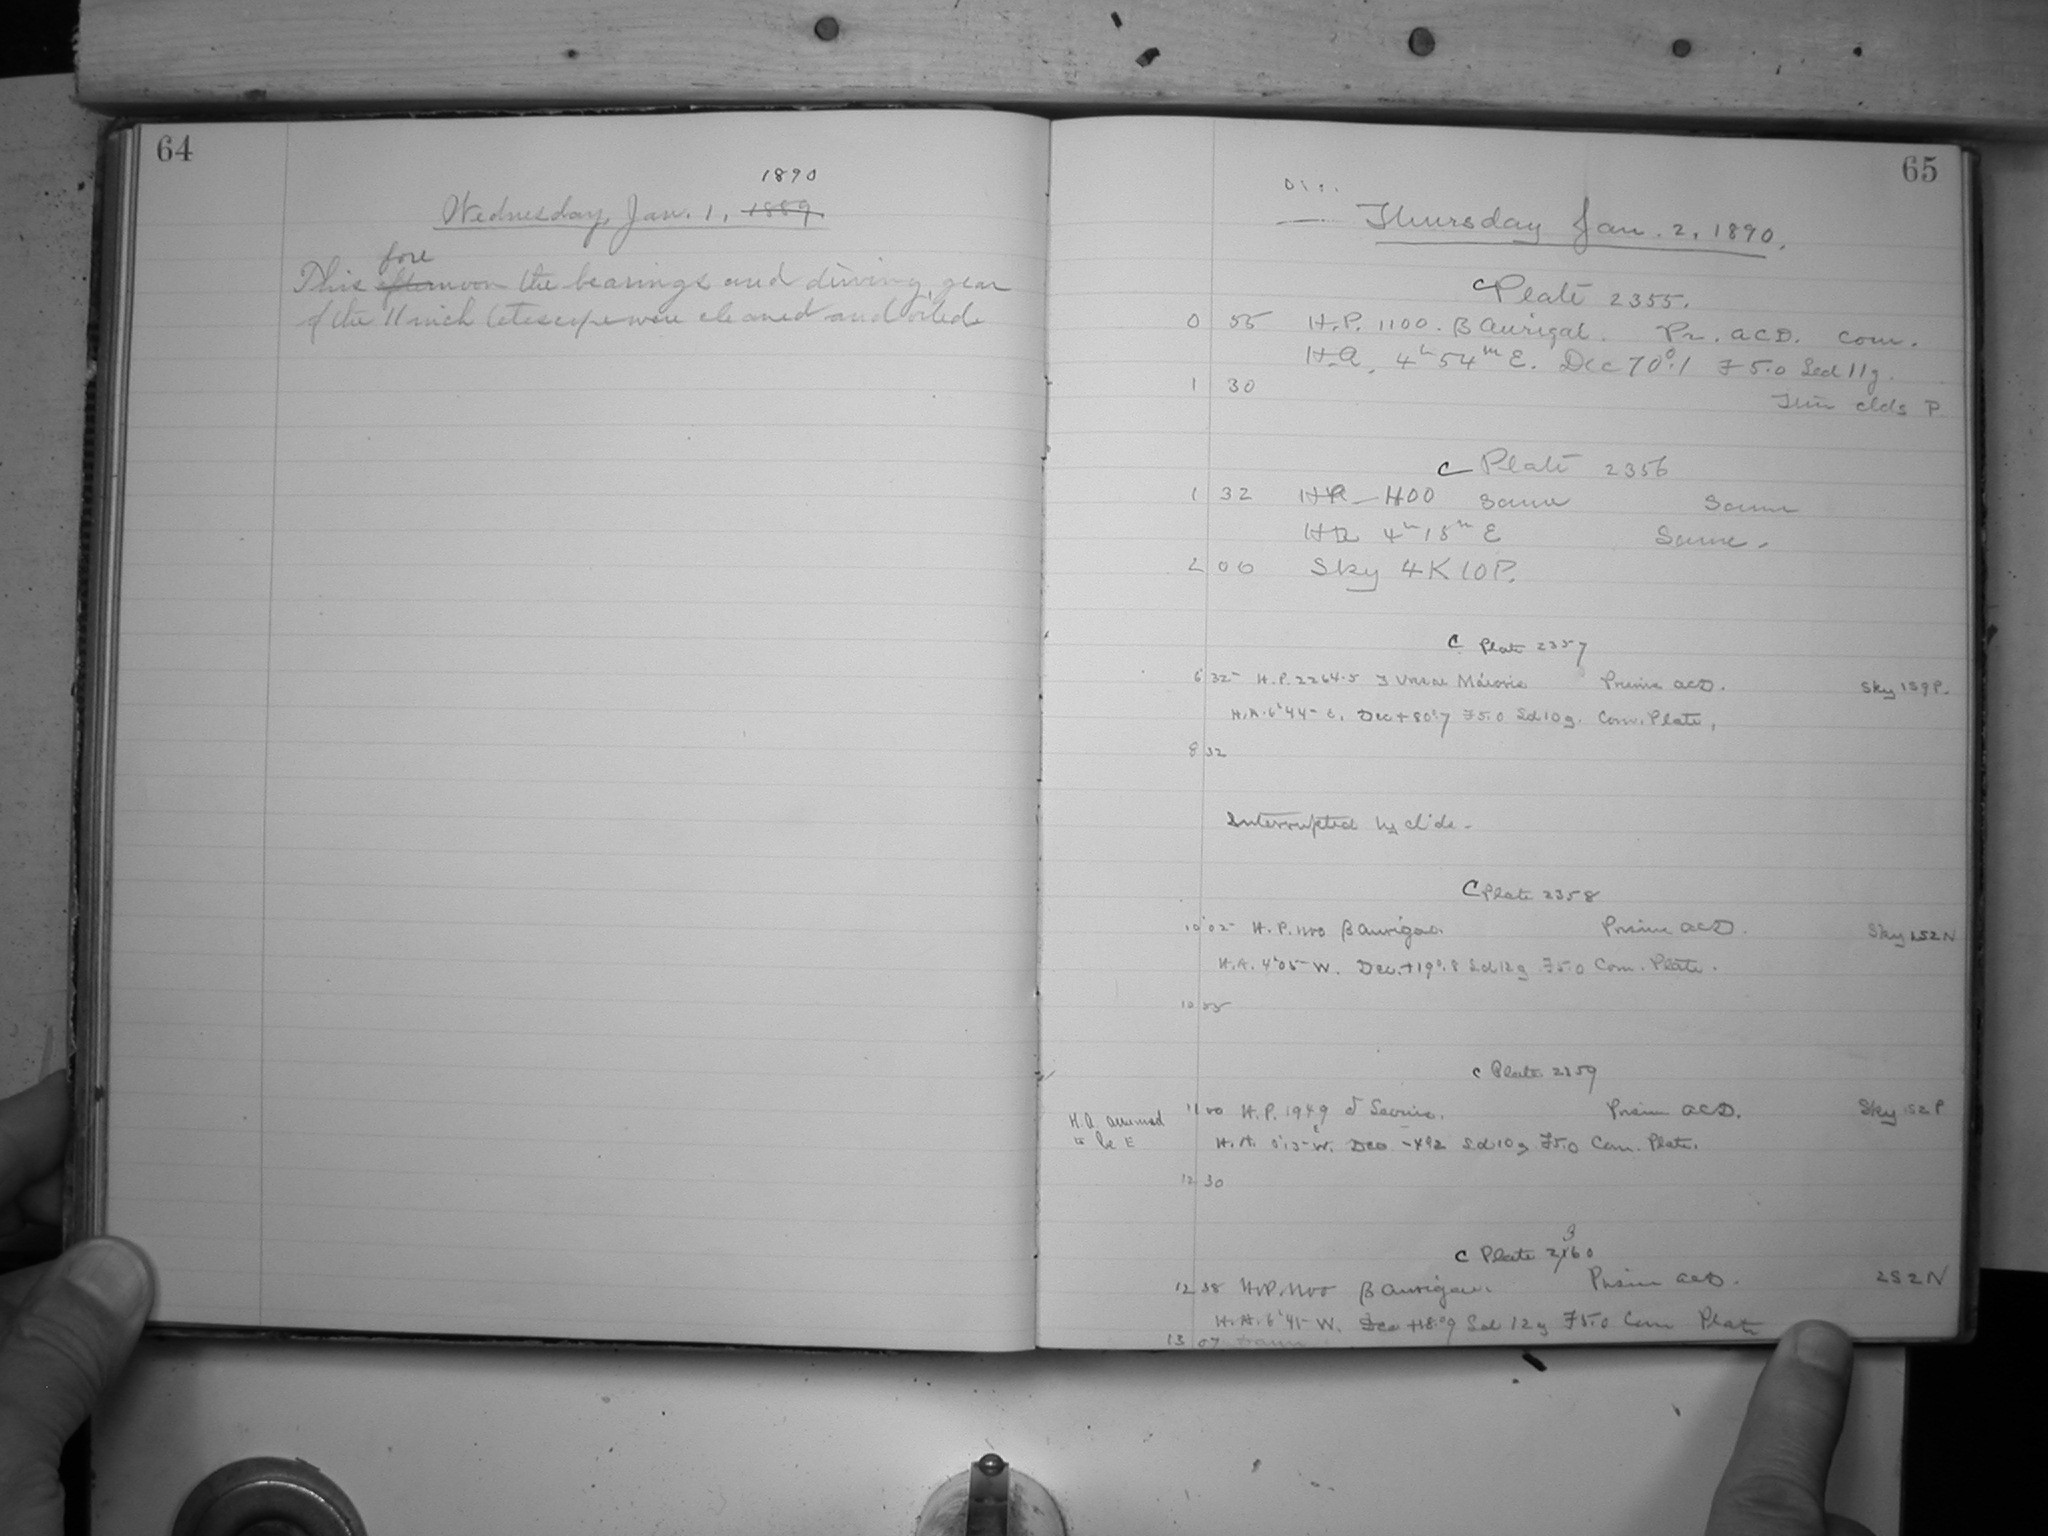 64
1890
Wednesday, Jan. 1, 1889.
fore
This afternoon the bearings and driving gear
of the 11 inch telescope were cleaned and oiled
65
Thursday Jan. 2, 1890.
C Plate 2355.
0 55 H.P. 1100. β Aurigae. Pr. ACD. Com.
H.A. 4h 54m E. Dec 70°.1 F 5.0 Sed 11g.
1 30
Thin clds P
C Plate 2356
1 32 H.P. 1100 Same Same
H.A 4h 15m E Same.
2 00 Sky 4K10P.
C Plate 2357
6 32 H.P. 2264.5 ζ Ursae Majoris Prism ACD. Sky 1S9P.
H.A. 6h 44m E. Dec + 80°.7 F5.0 Sd 10g. Com. Plate.
8 32
Interrupted by clds.
C Plate 2358
10 02 H.P. 1100 β Aurigae. Prism ACD. Sky 1S2N
H.A. 4h 05m W. Dec. +19°.8 Sd 12g F5.0 Com. Plate.
10 55
C Plate 2359
11 00 H.P. 1949 Prism ACD. Sky 1S2P
H.A. assumed
to be E
E
H.A. 0h 15m W. Dec -4°.2 Sd 10g F5.0 Com. Plate.
12 30
3
C Plate 2160
12 38 H.P. 1100 β Aurigae. Prism ACD. 2S2N
H.A. 6h 41m W. Dec +18°.9 Sd 12g F5.0 Com Plate
13 07 Dawn